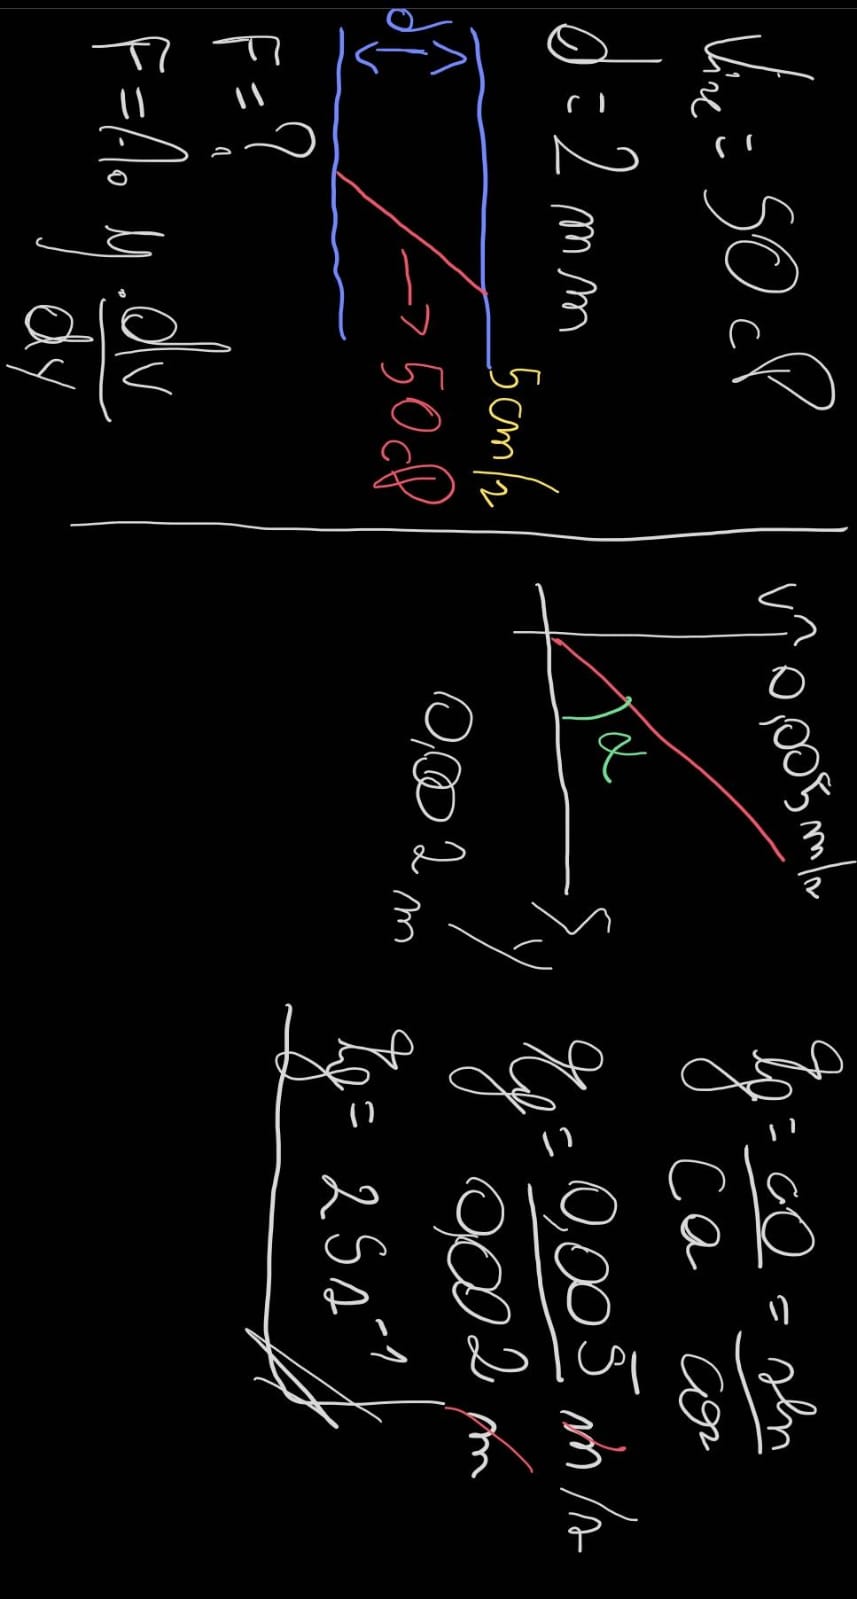 Visc = 50 cP
d = 2 mm
5cm/s
d
→ 50cP
F = ?
F = A. μ . dv/dy
v 0,005m/s
α
y
0,002 m
tg = CO/Ca = sen/cos
tg = 0,005 m/s / 0,002 m
tg = 25 s⁻¹